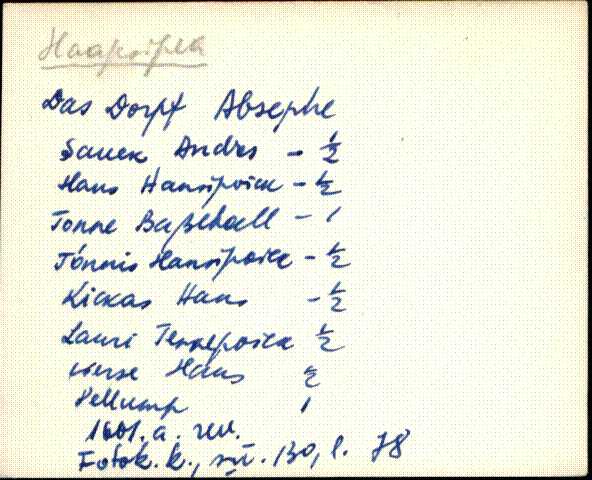 Haapsipea
Das Dorpf Absephe
Sauek Andres - ½
Hans Hansipoick - ½
Tonne Baßekaell - 1
Tönnis Hansipoick - ½
Kickas Hans - ½
Lauri Tennepoick ½
Hans ½
Pellump 1
1601. a. rev.
Fotok. k., sü. 130, l. 78